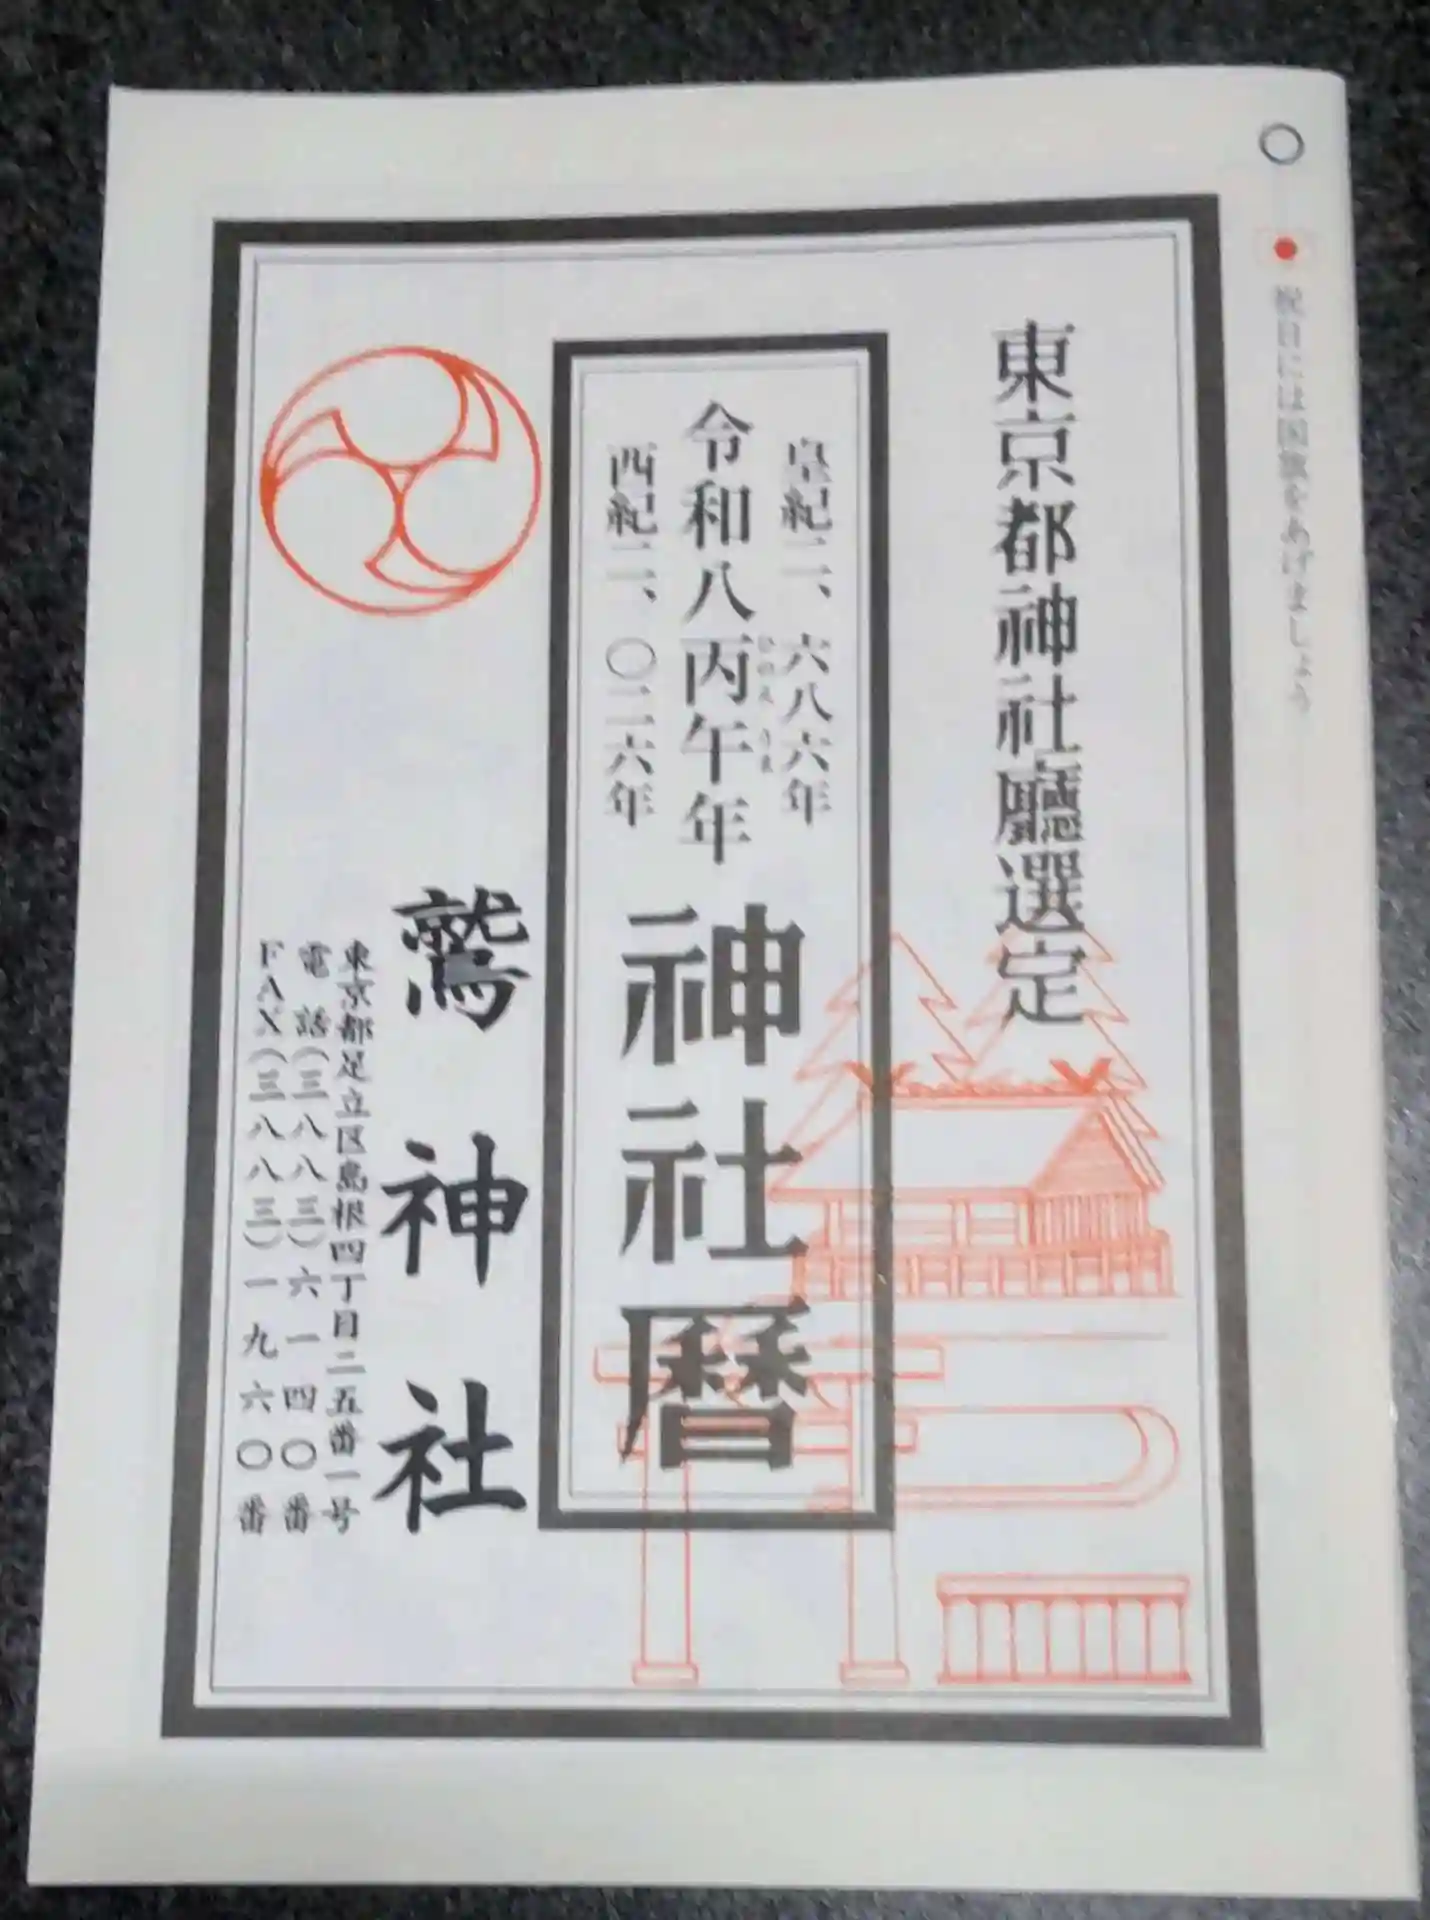 祝日には国旗をあげましょう
東京都神社廳選定
皇紀二、六八六年
令和八丙午年
ひのえうま
西紀二、〇二六年
神社暦
鷲神社
東京都足立区島根四丁目二五番一号
電話(三八八三)六一四〇番
FAX(三八八三)一九六〇番